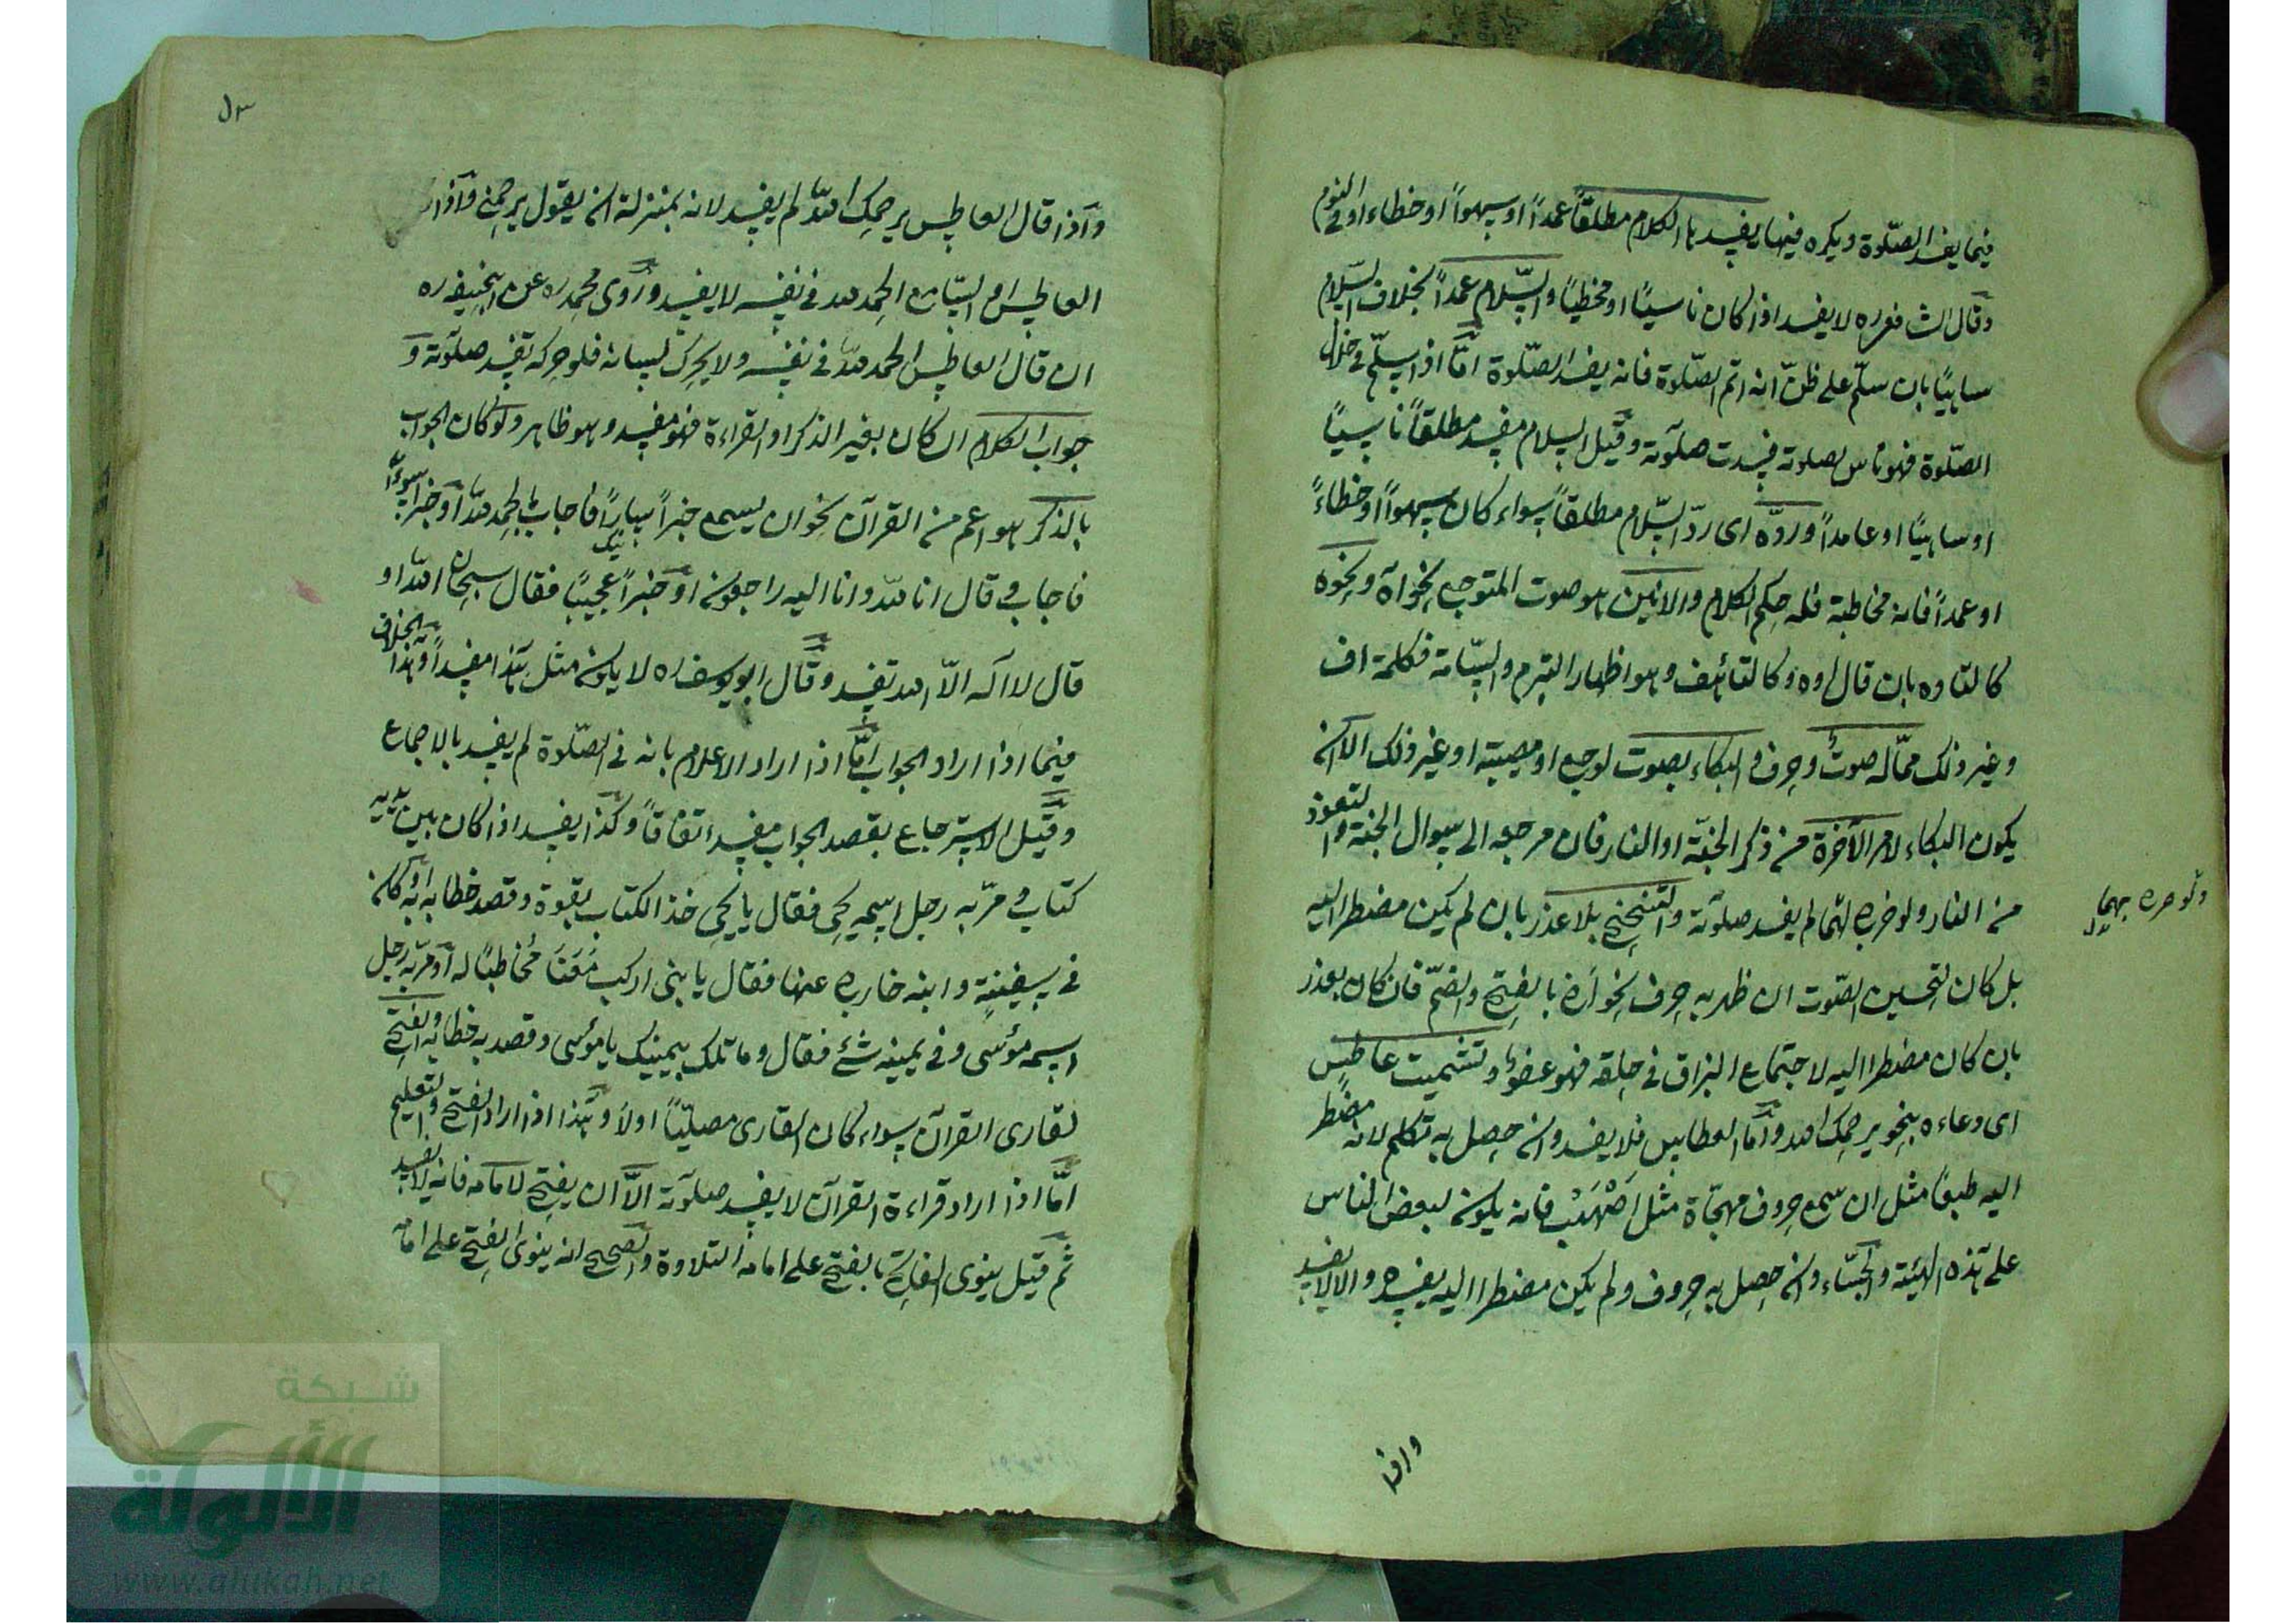 فيما يفسد الصلوة ويكره فيها يفسدها الكلام مطلقاً عمداً او سهواً او خطاء او في النوم
وقال الشافعي ره لا يفسد اذا كان ناسياً او مخطياً والسلام عمداً بخلاف السلام
ساهياً بان سلّم على ظنّ انه اتم الصلوة فانه يفسد الصلوة امّا اذا سلّم في خلال
الصلوة فهو ناس لصلوته فسدت صلوته وقيل السلام مفسد مطلقاً ناسياً
او ساهياً او عامداً وردّه اى ردّ السّلام مطلقاً سواء كان سهواً او خطاءً
او عمداً فانه مخاطبة فله حكم الكلام والانين هو صوت المتوجع نحو آه ونحوه
كالتاوه بان قال اوه وكالتافف وهو اظهار التبرم والسّامة فكلمة اف
وغير ذلك ممّا له صوتٌ وحرف والبكاء بصوت لوجع او مصيبة او غير ذلك الا ان
يكون البكاء لامر الآخرة من ذكر الجنّة او النار فان مرجعه الى سوال الجنة والتعوذ
من النار ولو ضربه لهما لم يفسد صلوته والتنحنح بلا عذر بان لم يكن مضطرا اليه
ولو صرح بهما
بل كان لتحسين الصّوت ان ظهر به حرف نحو اح بالفتح والضمّ فان كان بعذر
بان كان مضطرا اليه لاجتماع البزاق في حلقه فهو عفوٌ وتشميت عاطس
اى دعاءه بنحو يرحمك الله وامّا العطاس فلا يفسد وان حصل به تكلم لانه مضطر
اليه طبعاً مثل ان سمع حروف مهجّاة مثل اصهب فانه يكون لبعض الناس
على هذه الهيئة والجشاء وان حصل به حروف ولم يكن مضطرا اليه يفسد والا لا يفسد
واذا
وآذا قال العاطس يرحمك الله لم يفسد لانه بمنزلة ان يقول يرحمني
العاطس ام السّامع الحمد لله في نفسه لا يفسد وروى محمد ره عن ابيحنيفه ره
ان قال العاطس الحمد لله في نفسه ولا يحرك لسانه فلو حركه تفسد صلوته و
جواب الكلام ان كان بغير الذكر او القراءة فهو مفسد وهو ظاهر ولو كان الجواب
بالذكر هو اعم من القرآن نحو ان يسمع خبراً سارّاً فاجاب بالحمد لله او خبراً سوءً
فاجاب وقال انا لله وانا اليه راجعون او خبراً عجيباً فقال سبحان الله او
قال لا اله الاّ الله تفسد وقال ابو يوسف ره لا يكون مثل هذا مفسداً وهذا الخلاف
فيما اذا اراد الجواب امّا اذا اراد الاعلام بانه في الصّلوة لم يفسد بالاجماع
وقيل الاسترجاع بقصد الجواب مفسد اتفاقاً وكذا يفسد اذا كان بين يديه
كتاب ومرّ به رجل اسمه يحيى فقال يا يحيى خذ الكتاب بقوة وقصد خطابه او كان
في سفينة وابنه خارج عنها فقال يا بنى اركب معنا مخاطباً له او مرّ به رجل
اسمه موسى وفي يمينه شئ فقال وما تلك بيمينك يا موسى وقصد به خطابه والفتح
لقارى القرآن سواء كان القارى مصلّياً اولا وهذا اذا اراد الفتح والتعليم
امّا اذا اراد قراءة القرآن لا يفسد صلوته الاّ ان يفتح لامامه فانه لا يفسد
ثم قيل ينوى الفاتح بالفتح على امامه التلاوة والصحيح انه ينوى الفتح على امامه
شبكة
الألوكة
www.alukah.net